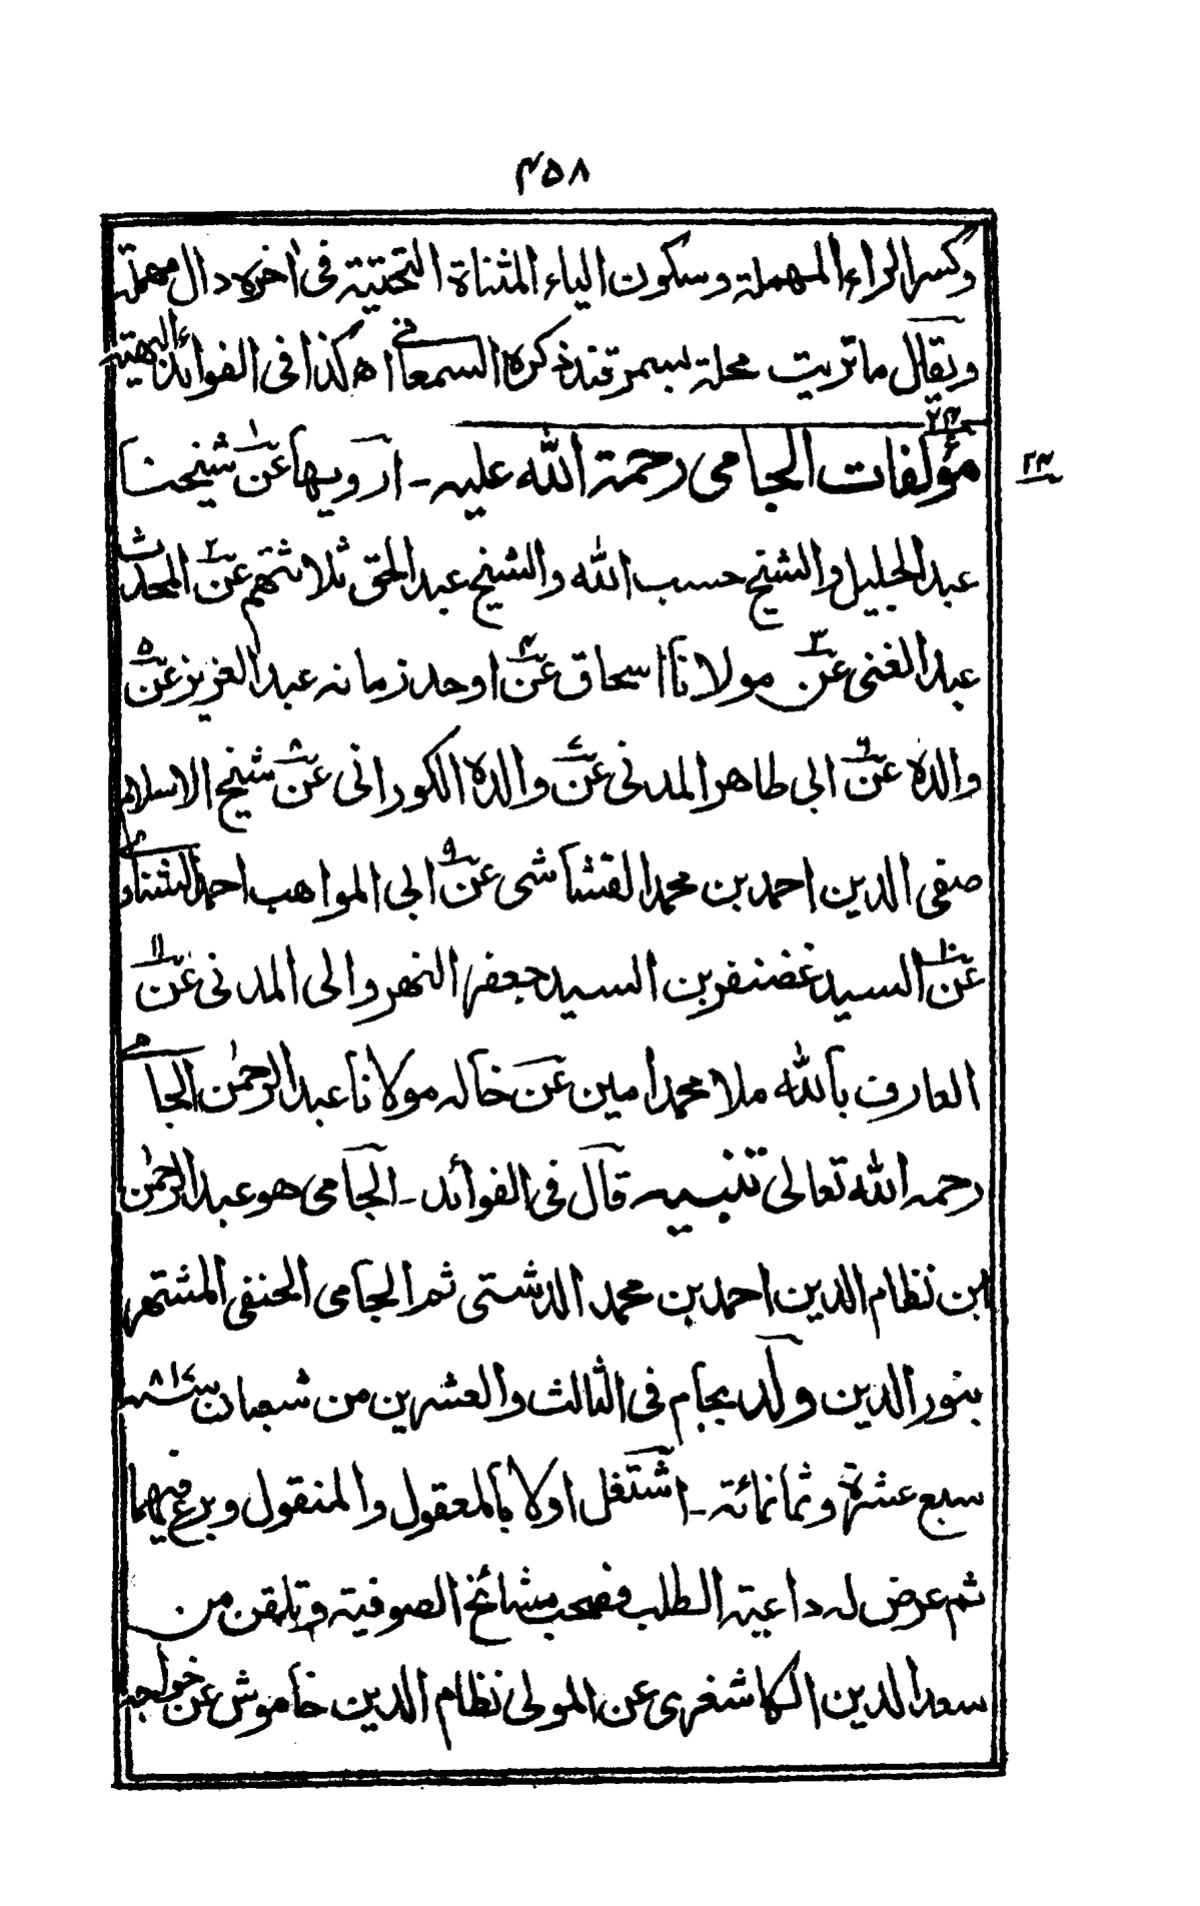 ۴۵۸
وكسر الراء المهملة وسكون الياء المثناة التحتية فى اخره دال مهملة
ويقال ماتريت محلة بسمرقند ذكره السمعانى اه كذا فى الفوائد البهية
۲۴
مؤلفات الجامى رحمة الله عليه ـ ارويها عن۱ شيخنا
۲۴
عبد الجليل والشيخ حسب الله والشيخ عبد الحق ثلاثتهم عن۲ المحدث
عبد الغنى عن۳ مولانا اسحاق عن۴ اوحد زمانه عبد العزيز عن۵
والده عن۶ ابى طاهر المدنى عن۷ والده الكورانى عن۸ شيخ الاسلام
صفى الدين احمد بن محمد القشاشى عن۹ ابى المواهب احمد الشناوى
عن۱۰ السيد غضنفر بن السيد جعفر النهروالى المدنى عن۱۱
العارف بالله ملا محمد امين عن خاله مولانا عبد الرحمٰن الجامى
رحمه الله تعالى تنبيه قال فى الفوائد ـ الجامى هو عبد الرحمٰن
ابن نظام الدين احمد بن محمد الدشتى ثم الجامى الحنفى المشتهر
بنور الدين ولد بجام فى الثالث والعشرين من شعبان سنة ۸۱۷
سبع عشرة وثمانمائة ـ اشتغل اولا بالمعقول والمنقول وبرع فيهما
ثم عرض له داعية الطلب فصحب مشائخ الصوفية وتلقن من
سعد الدين الكاشغرى عن المولى نظام الدين خاموش عن خواجه